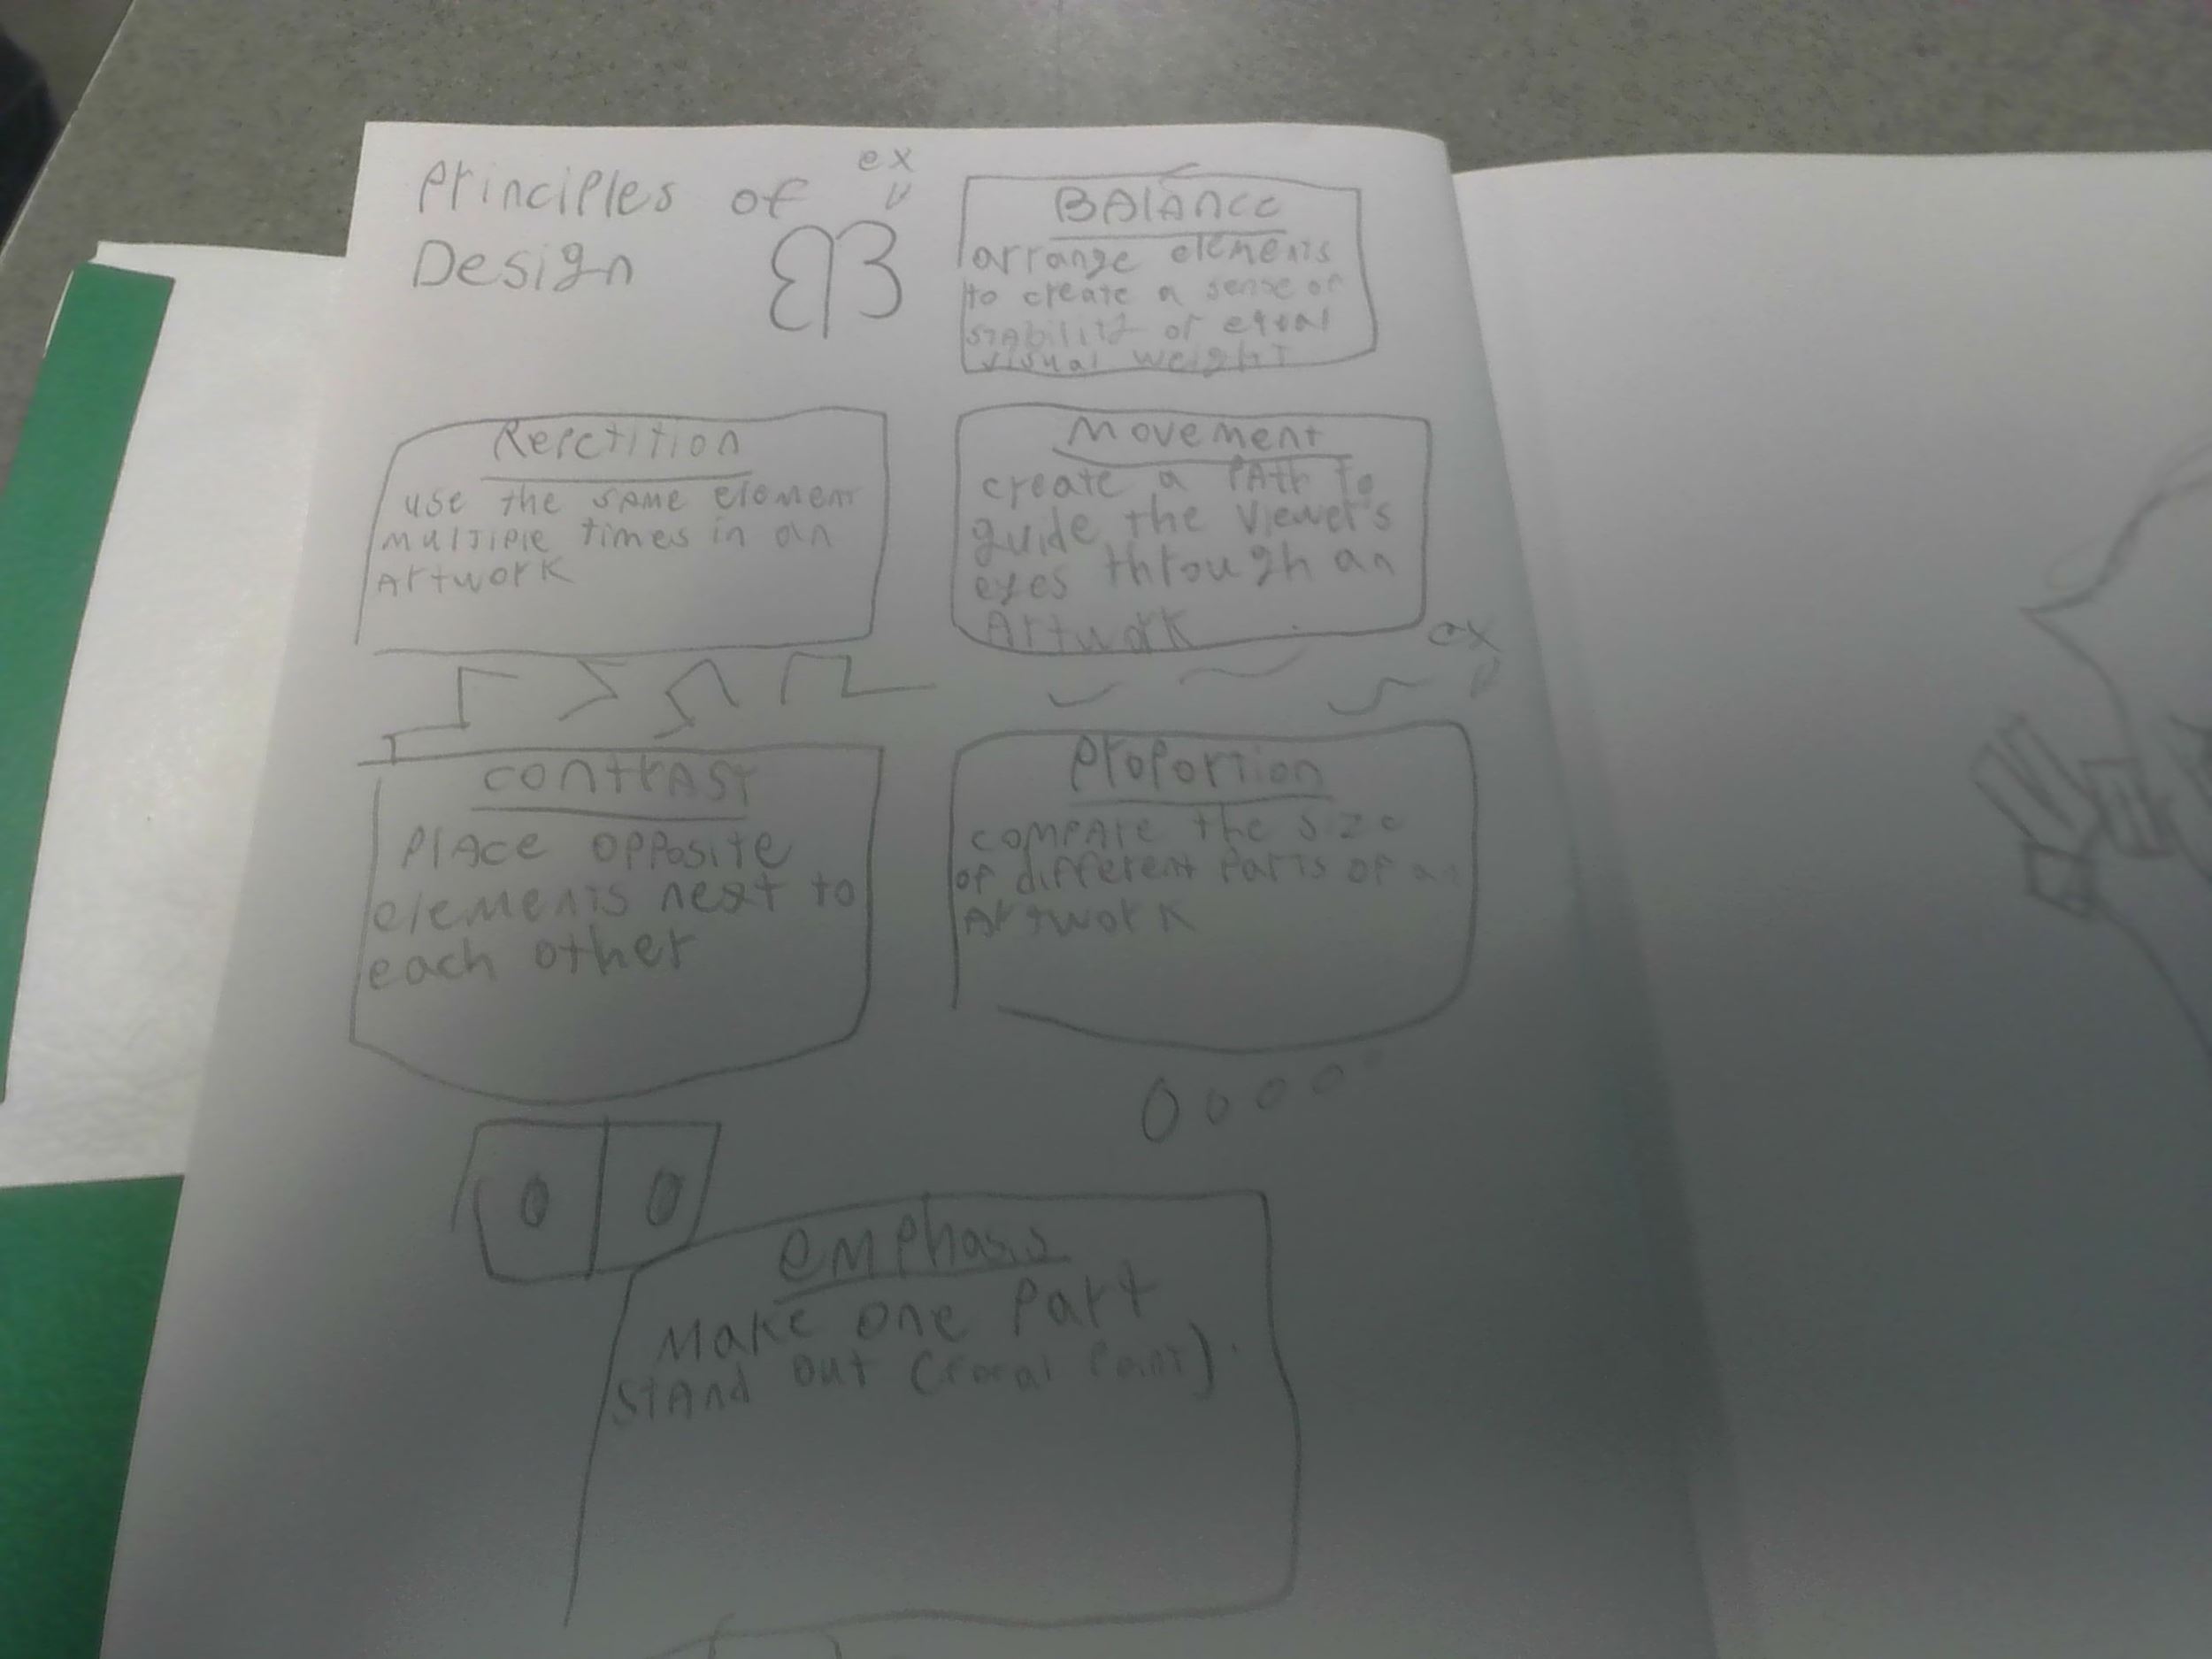 Principles of
Design
ex
BAlAnce
arrange elements
to create a sense of
stability or equal
visual weight
Repetition
use the same element
multiple times in an
Artwork
Movement
create a PAth to
guide the viewer's
eyes through an
Artwork
ex
contrAst
PlAce opposite
elements next to
each other
Proportion
compAre the size
of different Parts of an
Artwork
emphasis
Make one Part
stAnd out (focal Point).